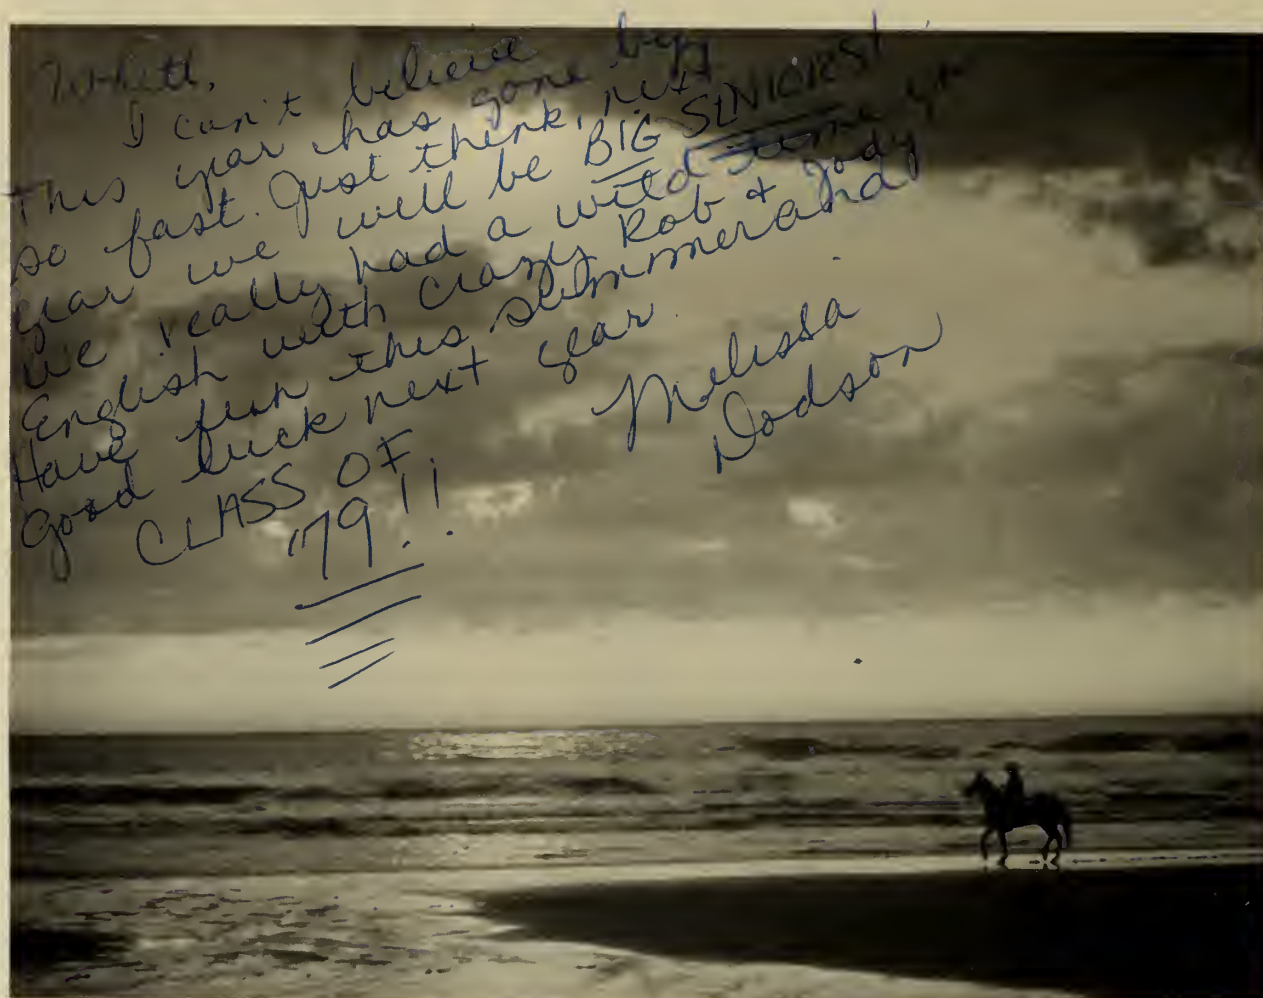 I can't believe
this year has gone by
so fast. Just think, next
year we will be BIG SENIORS!
We really had a wild time in
English with Crazy Rob & Jody
Have fun this summer and
good luck next year.
CLASS OF
'79!!
Melissa
Dodson